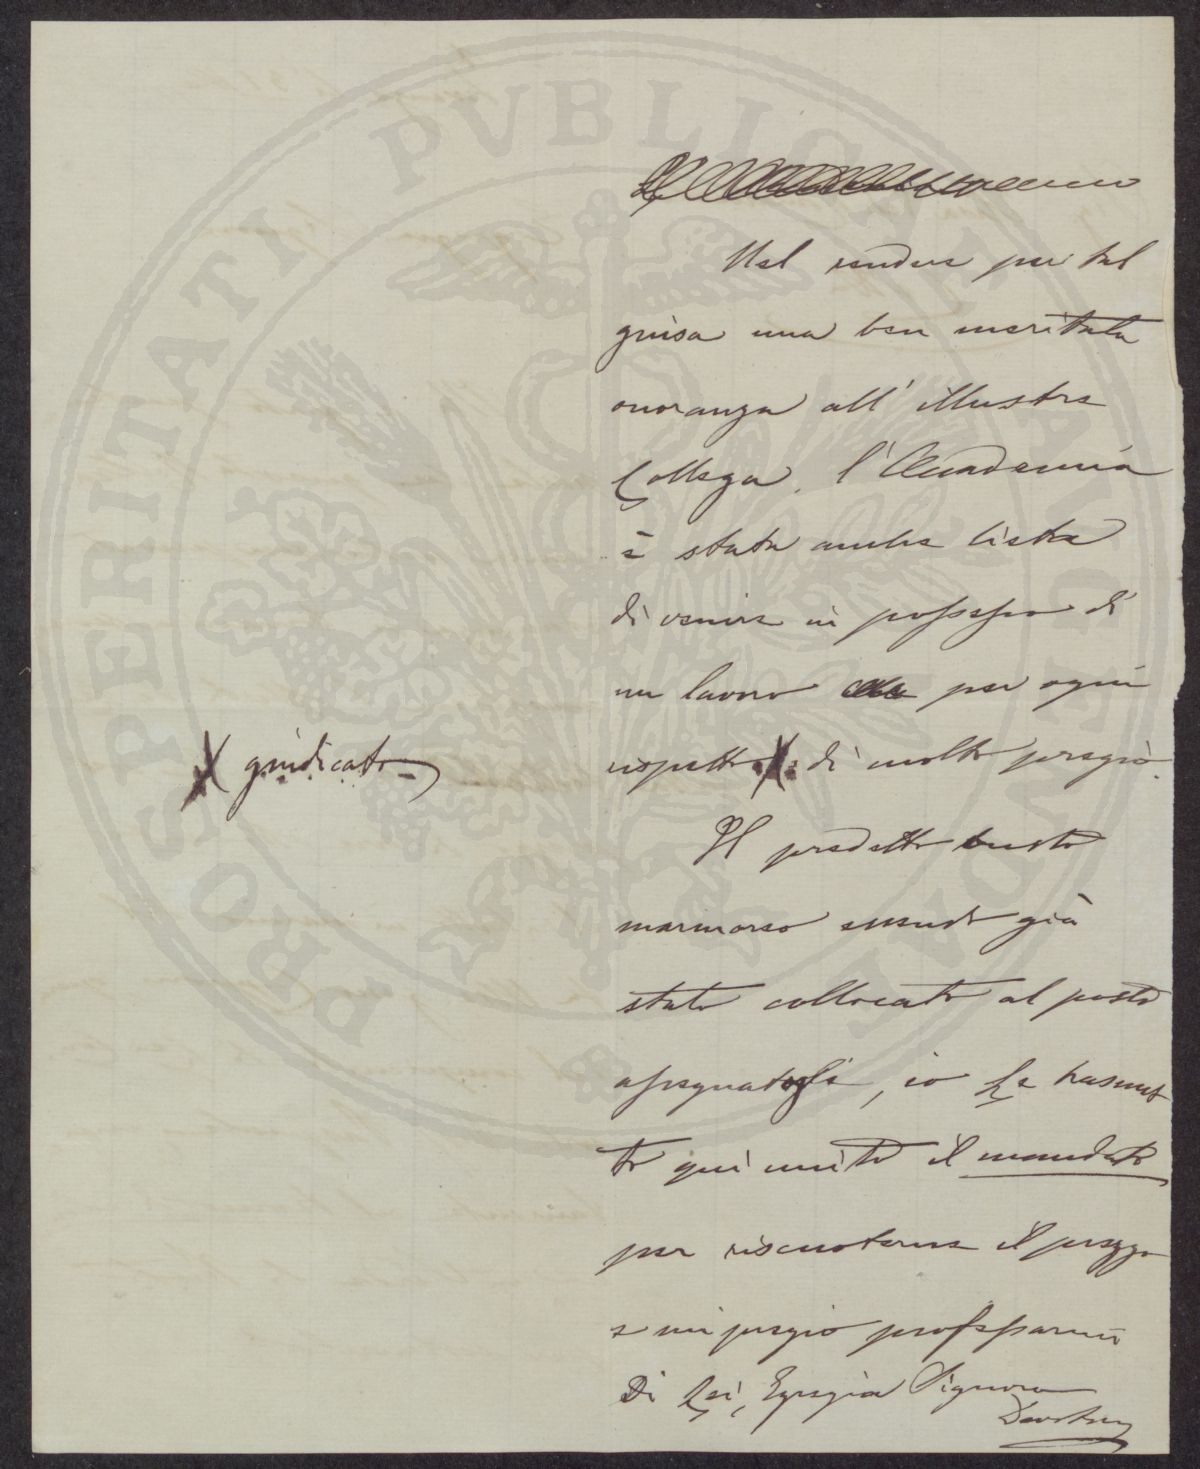 Nel rendere per tal
guisa una ben meritata
onoranza all'illustre
Collega, l'Accademia
è stata anche lieta
di venire in possesso di
un lavoro per ogni
rispetto X di molto pregio.
X giudicato
Il predetto busto
marmoreo essendo già
stato collocato al posto
assegnatogli, io Le trasmet
to qui unito il mandato
per riscuoterne il prezzo
e mi pregio professarmi
Di Lei, Egregia Signora
PROSPERITATI PVBLICAE AVGENDAE